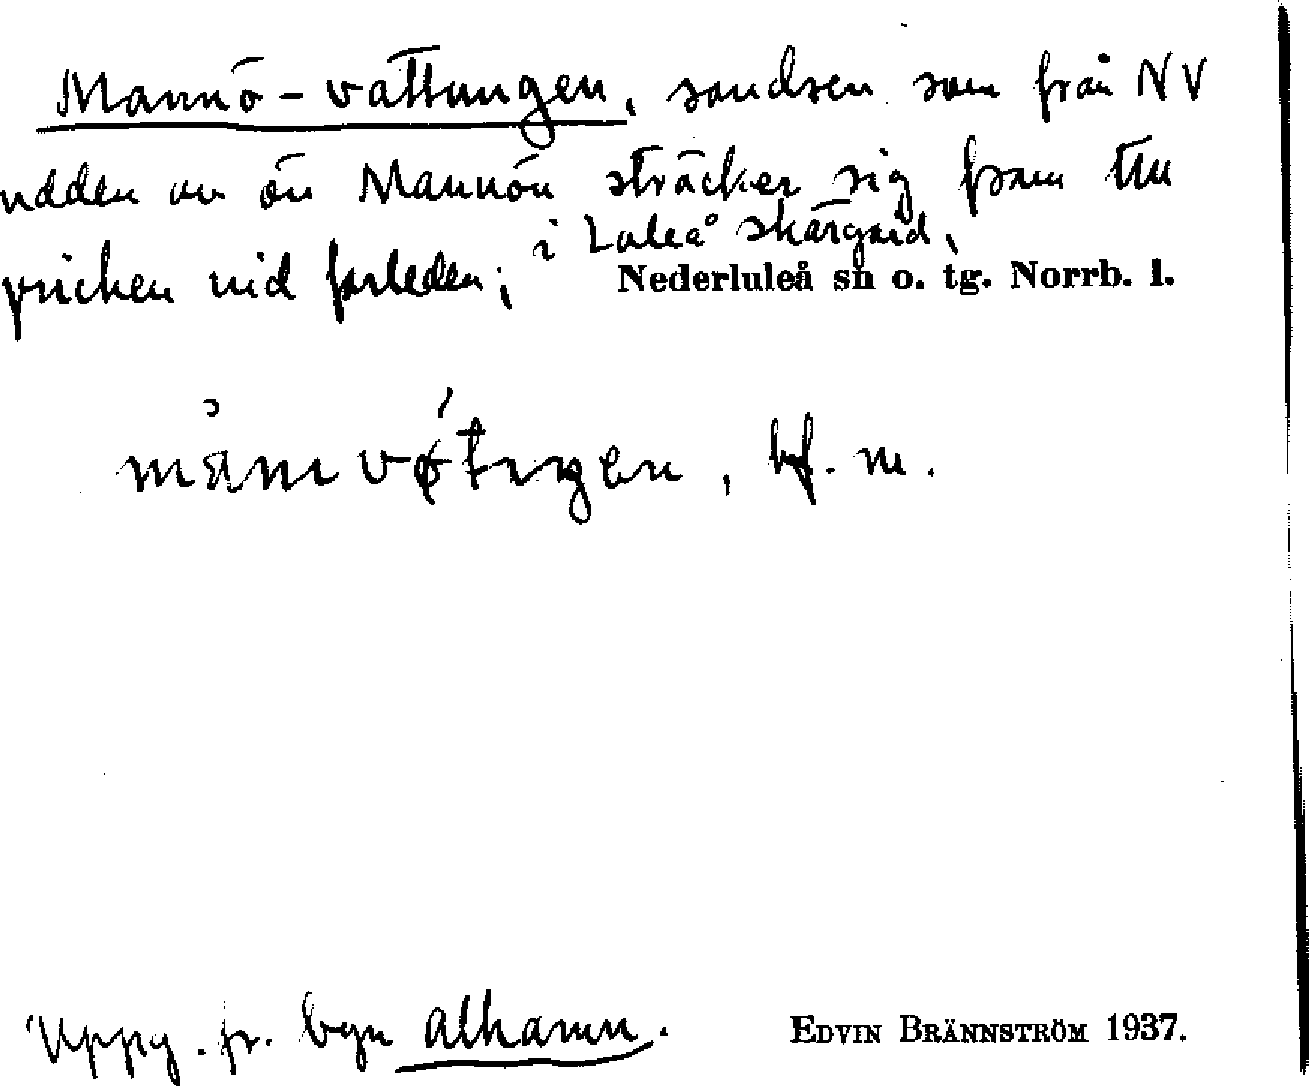 Mannö-vättungen, sandren som från NV
udden av ön Mannön sträcker sig fram till
pricken vid farleden; i Luleå skärgård,
Nederluleå sn o. tg. Norrb. l.
bf. m.
Uppg. fr. byn Alhamn.
EDVIN BRÄNNSTRÖM 1937.